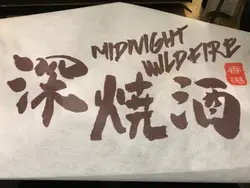 MIDNIGHT
WILDFIRE
深燒酒
香港